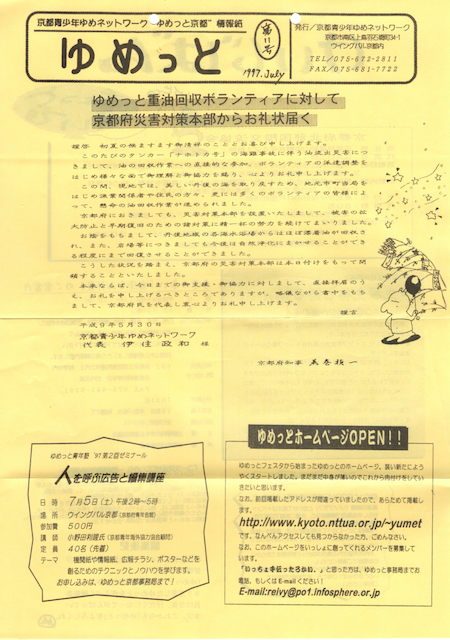 京都青少年ゆめネットワーク"ゆめっと京都"情報紙
ゆめっと
第11号
1997.July
発行/京都青少年ゆめネットワーク
京都市南区上鳥羽石橋町34-1
ウイングパル京都内
TEL/075-672-2811
FAX/075-681-7722
ゆめっと重油回収ボランティアに対して
京都府災害対策本部からお礼状届く
謹啓 初夏の候ますます御清祥のこととお喜び申し上げます。
このたびのタンカー「ナホトカ号」の海難事故に伴う油流出災害につ
きまして、油の回収作業への直接的な参加、ボランティアの派遣調整を
はじめ様々な面で御理解と御協力を賜り、心よりお礼申し上げます。
この間、現地では、美しい丹後の海を取り戻すため、地元市町当局を
はじめ漁業関係者や住民の方々、更には多くのボランティアの皆様によ
って、懸命の油回収作業が進められました。
京都府におきましても、災害対策本部を設置いたしまして、被害の拡
大防止と早期復旧のための諸対策に精一杯の努力を続けてまいりました。
お陰をもちまして、丹後地域の各海水浴場からはほぼ漂着油が回収さ
れ、また、岩場等につきましても今後は自然浄化にまかせることができ
る程度にまで回復させることができました。
こうした状況を踏まえ、京都府の災害対策本部は本日付けをもって閉
鎖することといたしました。
本来ならば、今日までの御支援・御協力に対しまして、直接拝眉のう
え、お礼を申し上げるべきところでありますが、略儀ながら書中をもち
まして、京都府民を代表し衷心よりお礼申し上げます。
謹言
平成9年5月30日
京都青少年ゆめネットワーク
代表 伊住政和 様
京都府知事 荒巻禎一
ゆめっと青年塾 '97第2回ゼミナール
人を呼ぶ広告と編集講座
日時 7月5日(土)午後2時〜5時
場所 ウイングパル京都(京都府青年会館)
参加費 500円
講師 小野田利證氏(京都青年海外協力協会顧問)
定員 40名(先着)
テーマ 機関紙や情報紙、広報チラシ、ポスターなどを
創るためのテクニックとノウハウを学びます。
お申し込みは、ゆめっと京都事務局まで!
ゆめっとホームページOPEN!!
ゆめっとフェスタから始まったゆめっとのホームページ。装い新たにようや
くスタートしました。まだまだ中身が薄いのでこれから肉付けをしていきた
いと思います。
なお、前回掲載したアドレスが間違っていましたので、あらためて掲載しま
す。
http://www.kyoto.nttua.or.jp/~yumet
です。なんべんアクセスしても見つからなかった方、ごめんなさい。
なお、このホームページをいっしょに創ってくれるメンバーを募集していま
す。
「いっちょ手伝ったろかい。」と思った方は、ゆめっと事務局までお
電話、もしくはE-mailください!
E-mail:reivy@po1.infosphere.or.jp